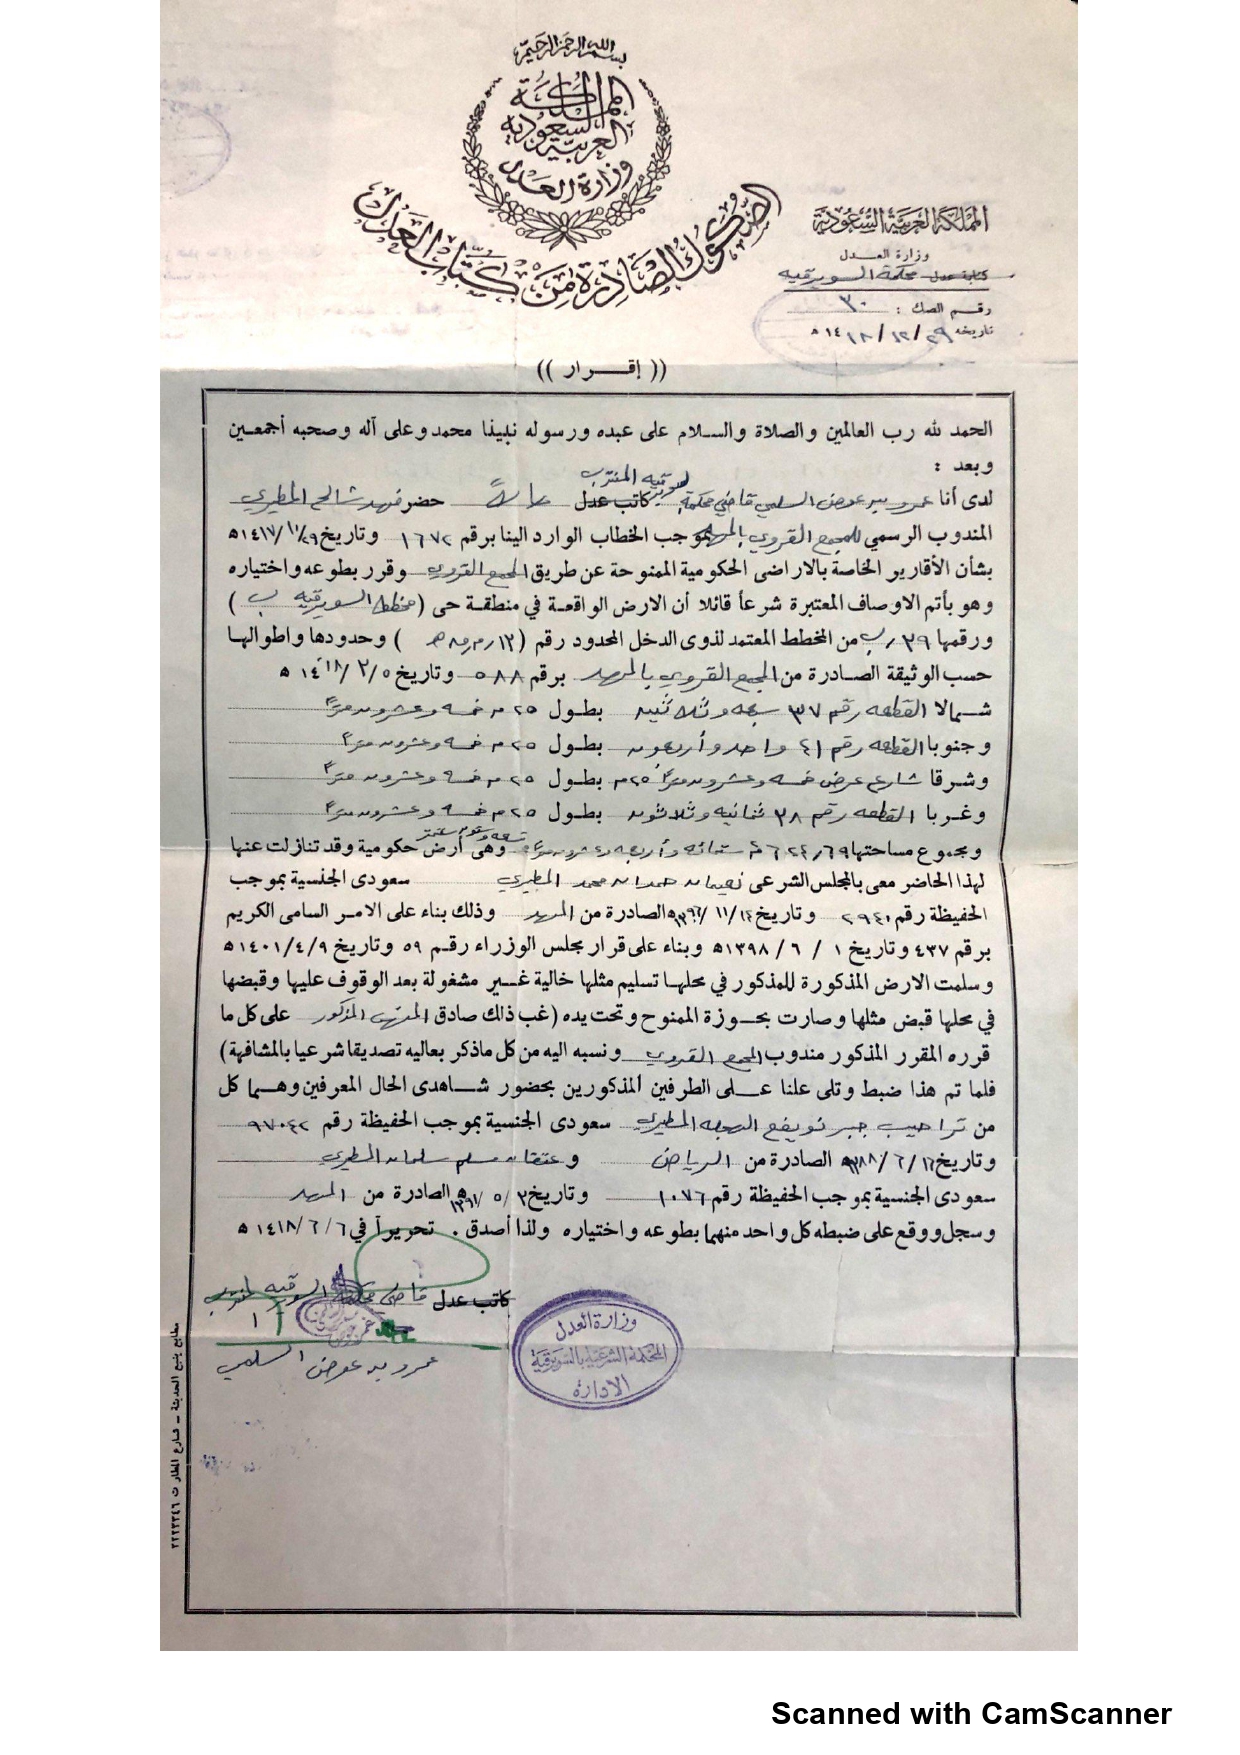 بسم الله الرحمن الرحيم
المملكة
العربية السعودية
وزارة العدل
الصكوك الصادرة من كتاب العدل
المملكة العربية السعودية
وزارة العدل
كتابة عدل محكمة السويرقيه
رقم الصك : ٣٠
تاريخه ٢٩ / ١٢ / ١٤١٨ هـ
(( إقرار ))
الحمد لله رب العالمين والصلاة والسلام على عبده ورسوله نبينا محمد وعلى آله وصحبه أجمعين
وبعد :
السويرقيه المنتدب
لدى أنا عمرو بن عوض السلمي قاضي محكمة كاتب عدل حضر فهد المطيري
المندوب الرسمي للمجمع القروي بالمهد بموجب الخطاب الوارد الينا برقم ١٦٧٢ وتاريخ ٢٩/ ١١/ ١٤١٧هـ
بشأن الأقارير الخاصة بالاراضى الحكومية الممنوحة عن طريق المجمع القروي وقرر بطوعه واختياره
وهو بأتم الاوصاف المعتبرة شرعاً قائلا أن الارض الواقعة في منطقة حى (مخطط السويرقيه ب )
ورقمها ٣٩ /ب من المخطط المعتمد لذوى الدخل المحدود رقم ( ) وحدودها واطوالها
حسب الوثيقة الصادرة من المجمع القروي بالمهد برقم ٥٨٨ وتاريخ ٥/ ٢/ ١٤١٨ هـ
شمالا القطعه رقم ٣٧ سبعه وثلاثين بطول ٢٥ م خمسه وعشرون متراً
وجنوبا القطعه رقم ٤١ واحد وأربعون بطول ٢٥ م خمسه وعشرون متراً
وشرقا شارع عرض خمسه وعشرون متراً ٢٥م بطول ٢٥ م خمسه وعشرون متراً
وغربا القطعه رقم ٣٨ ثمانيه وثلاثون بطول ٢٥ م خمسه وعشرون متراً
ومجموع مساحتها ٦٢٤,٦٩ م ستمائه وأربعه وعشرون متراً وهى أرض حكومية وقد تنازلت عنها
لهذا الحاضر معى بالمجلس الشرعى حمدان محمد المطيري سعودى الجنسية بموجب
الحفيظة رقم ٢٩٤١ وتاريخ ١٤/ ١١/ ١٣٩٦هـ الصادرة من المهد وذلك بناء على الامر السامى الكريم
برقم ٤٣٧ وتاريخ ١ / ٦ / ١٣٩٨هـ وبناء على قرار مجلس الوزراء رقم ٥٩ وتاريخ ١٤٠١/٤/٩هـ
وسلمت الارض المذكورة للمذكور في محلها تسليم مثلها خالية غير مشغولة بعد الوقوف عليها وقبضها
في محلها قبض مثلها وصارت بحوزة الممنوح وتحت يده (غب ذلك صادق المذكور على كل ما
قرره المقرر المذكور مندوب المجمع القروي ونسبه اليه من كل ماذكر بعاليه تصديقا شرعيا بالمشافهة)
فلما تم هذا ضبط وتلى علنا على الطرفين المذكورين بحضور شاهدى الحال المعرفين وهما كل
من تراحيب جبر المطيري سعودى الجنسية بموجب الحفيظة رقم ٩٧٠٤٢
وتاريخ ١٦/ ٦/ ١٣٨٨هـ الصادرة من الرياض و مسلم سلمان المطيري
سعودى الجنسية بموجب الحفيظة رقم ١٠٧٦ وتاريخ ٣/ ٥/ ١٣٩١هـ الصادرة من المهد
وسجل ووقع على ضبطه كل واحد منهما بطوعه واختياره ولذا أصدق . تحريراً في ٦/ ٦/ ١٤١٨ هـ
كاتب عدل قاضي محكمة السويرقيه المنتدب
عمرو بن عوض السلمي
وزارة العدل
المحكمة الشرعية بالسويرقية
الادارة
مطابع ينبع الحديثة ــ شارع المطار ت ٣٢٢٣٣٤٦
Scanned with CamScanner